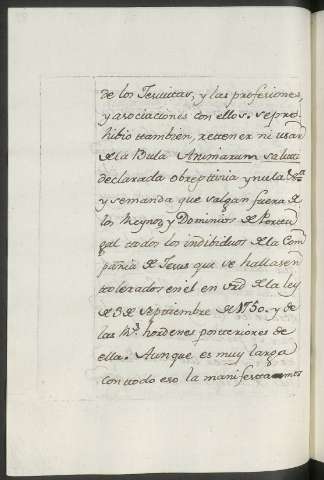 de los Jesuitas, y las profesiones,
y asociaciones con ellos. se pro-
hibio tambien, retener ni usar
de la Bula Animarum saluti
declarada obrepticia y nula
y se manda que salgan fuera de
los Reynos y Dominios de Portu
gal todos los indibiduos de la Com
pañia de Jesus que se hallasen
tolerados en el en vrd de la ley
de 3 de Septiembre de 1750. y de
las hordenes posteriores de
ella. Aunque es muy larga
con todo eso la manifestamos